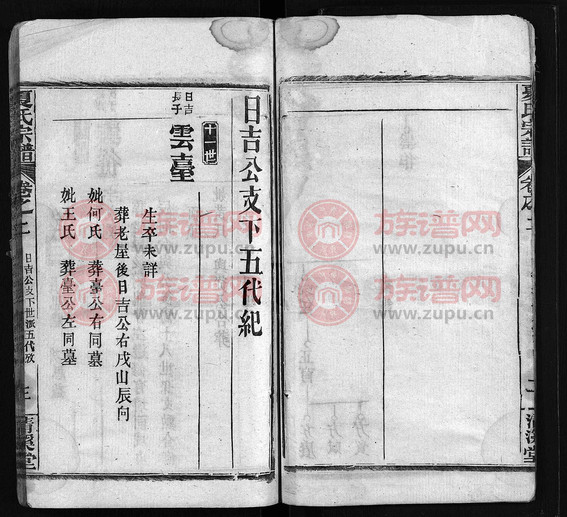 日吉公支下五代紀
十一世
日吉長子
雲臺
生卒未詳
葬老屋後日吉公右戌山辰向
妣何氏 葬臺公右同墓
妣王氏 葬臺公左同墓
夏氏宗譜
日吉公支下世派五代攷
清溪堂
夏氏宗譜
清溪堂
族谱网
www.zupu.cn
族谱网
www.zupu.cn
族谱网
www.zupu.cn
族谱网
www.zupu.cn